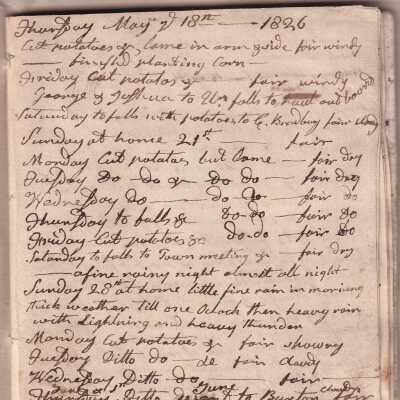 Thursday May ye 18th 1826
Cut potatoes &c, lame in arm & side fair windy
finish'd planting Corn
Friday Cut potatoes & fair windy
George & Joshua to Up. falls to haul out boards
Saturday to falls with potatoes to C. Bradbury fair
Sunday at home 21st fair
Monday Cut potatoes but lame fair dry
Tuesday Do Do & Do Do fair dry
Wednesday Do Do fair Do
Thursday to falls &c Do Do fair Do
Friday Cut potatoes &c Do Do fair Do
Saturday to falls to Town meeting & fair dry
a fine rainy night almost all night
Sunday 28th at home little fine rain in morning
thick weather till one Oclock then heavy rain
with Lightning and heavy thunder
Monday Cut potatoes & fair showry
Tuesday Ditto do do fair
Wednesday Ditto do fair
June
Thursday Ditto to Buxton fair